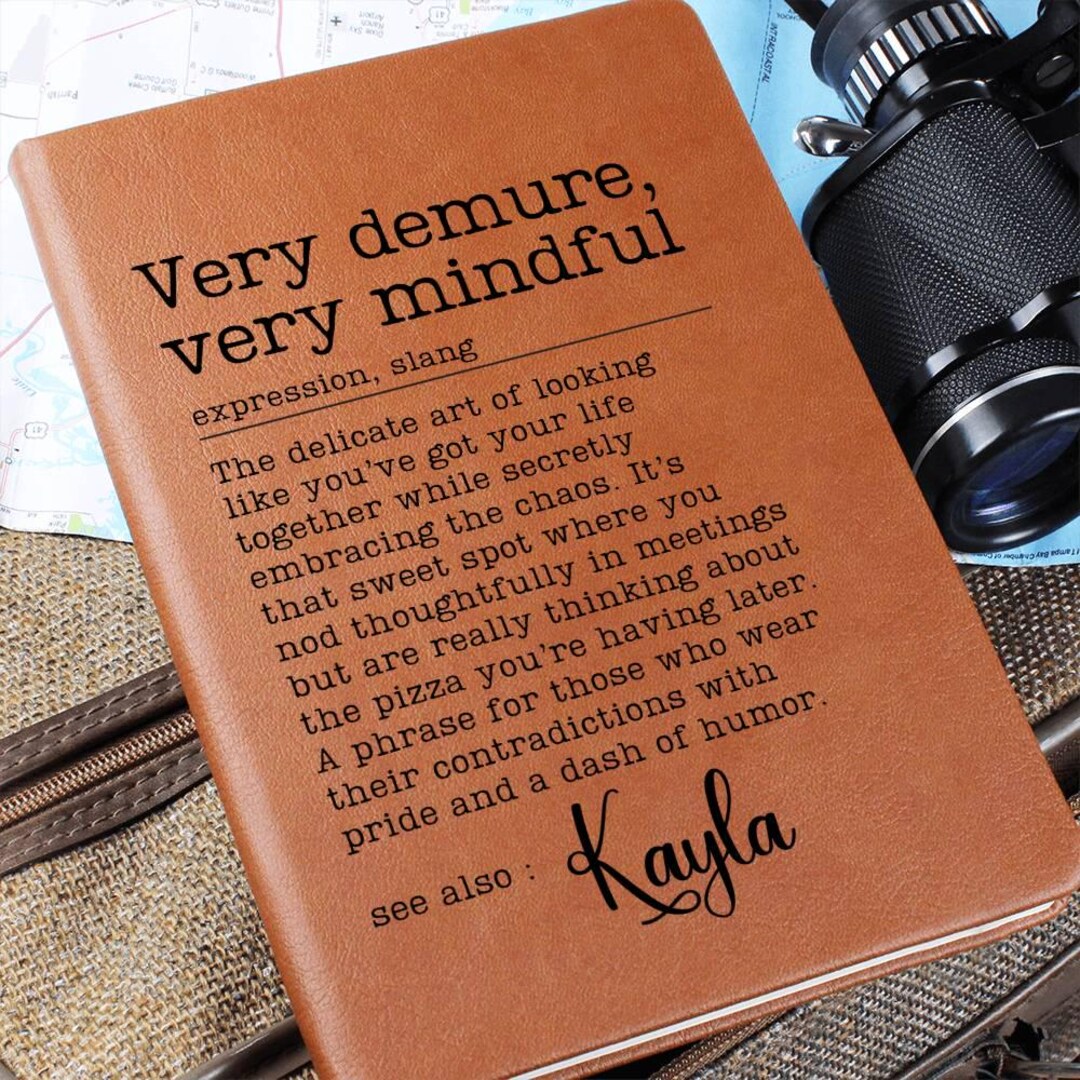 Very demure,
very mindful
expression, slang
The delicate art of looking
like you've got your life
together while secretly
embracing the chaos. It's
that sweet spot where you
nod thoughtfully in meetings
but are really thinking about
the pizza you're having later.
A phrase for those who wear
their contradictions with
pride and a dash of humor.
see also : Kayla
41
41
INTRACOASTAL